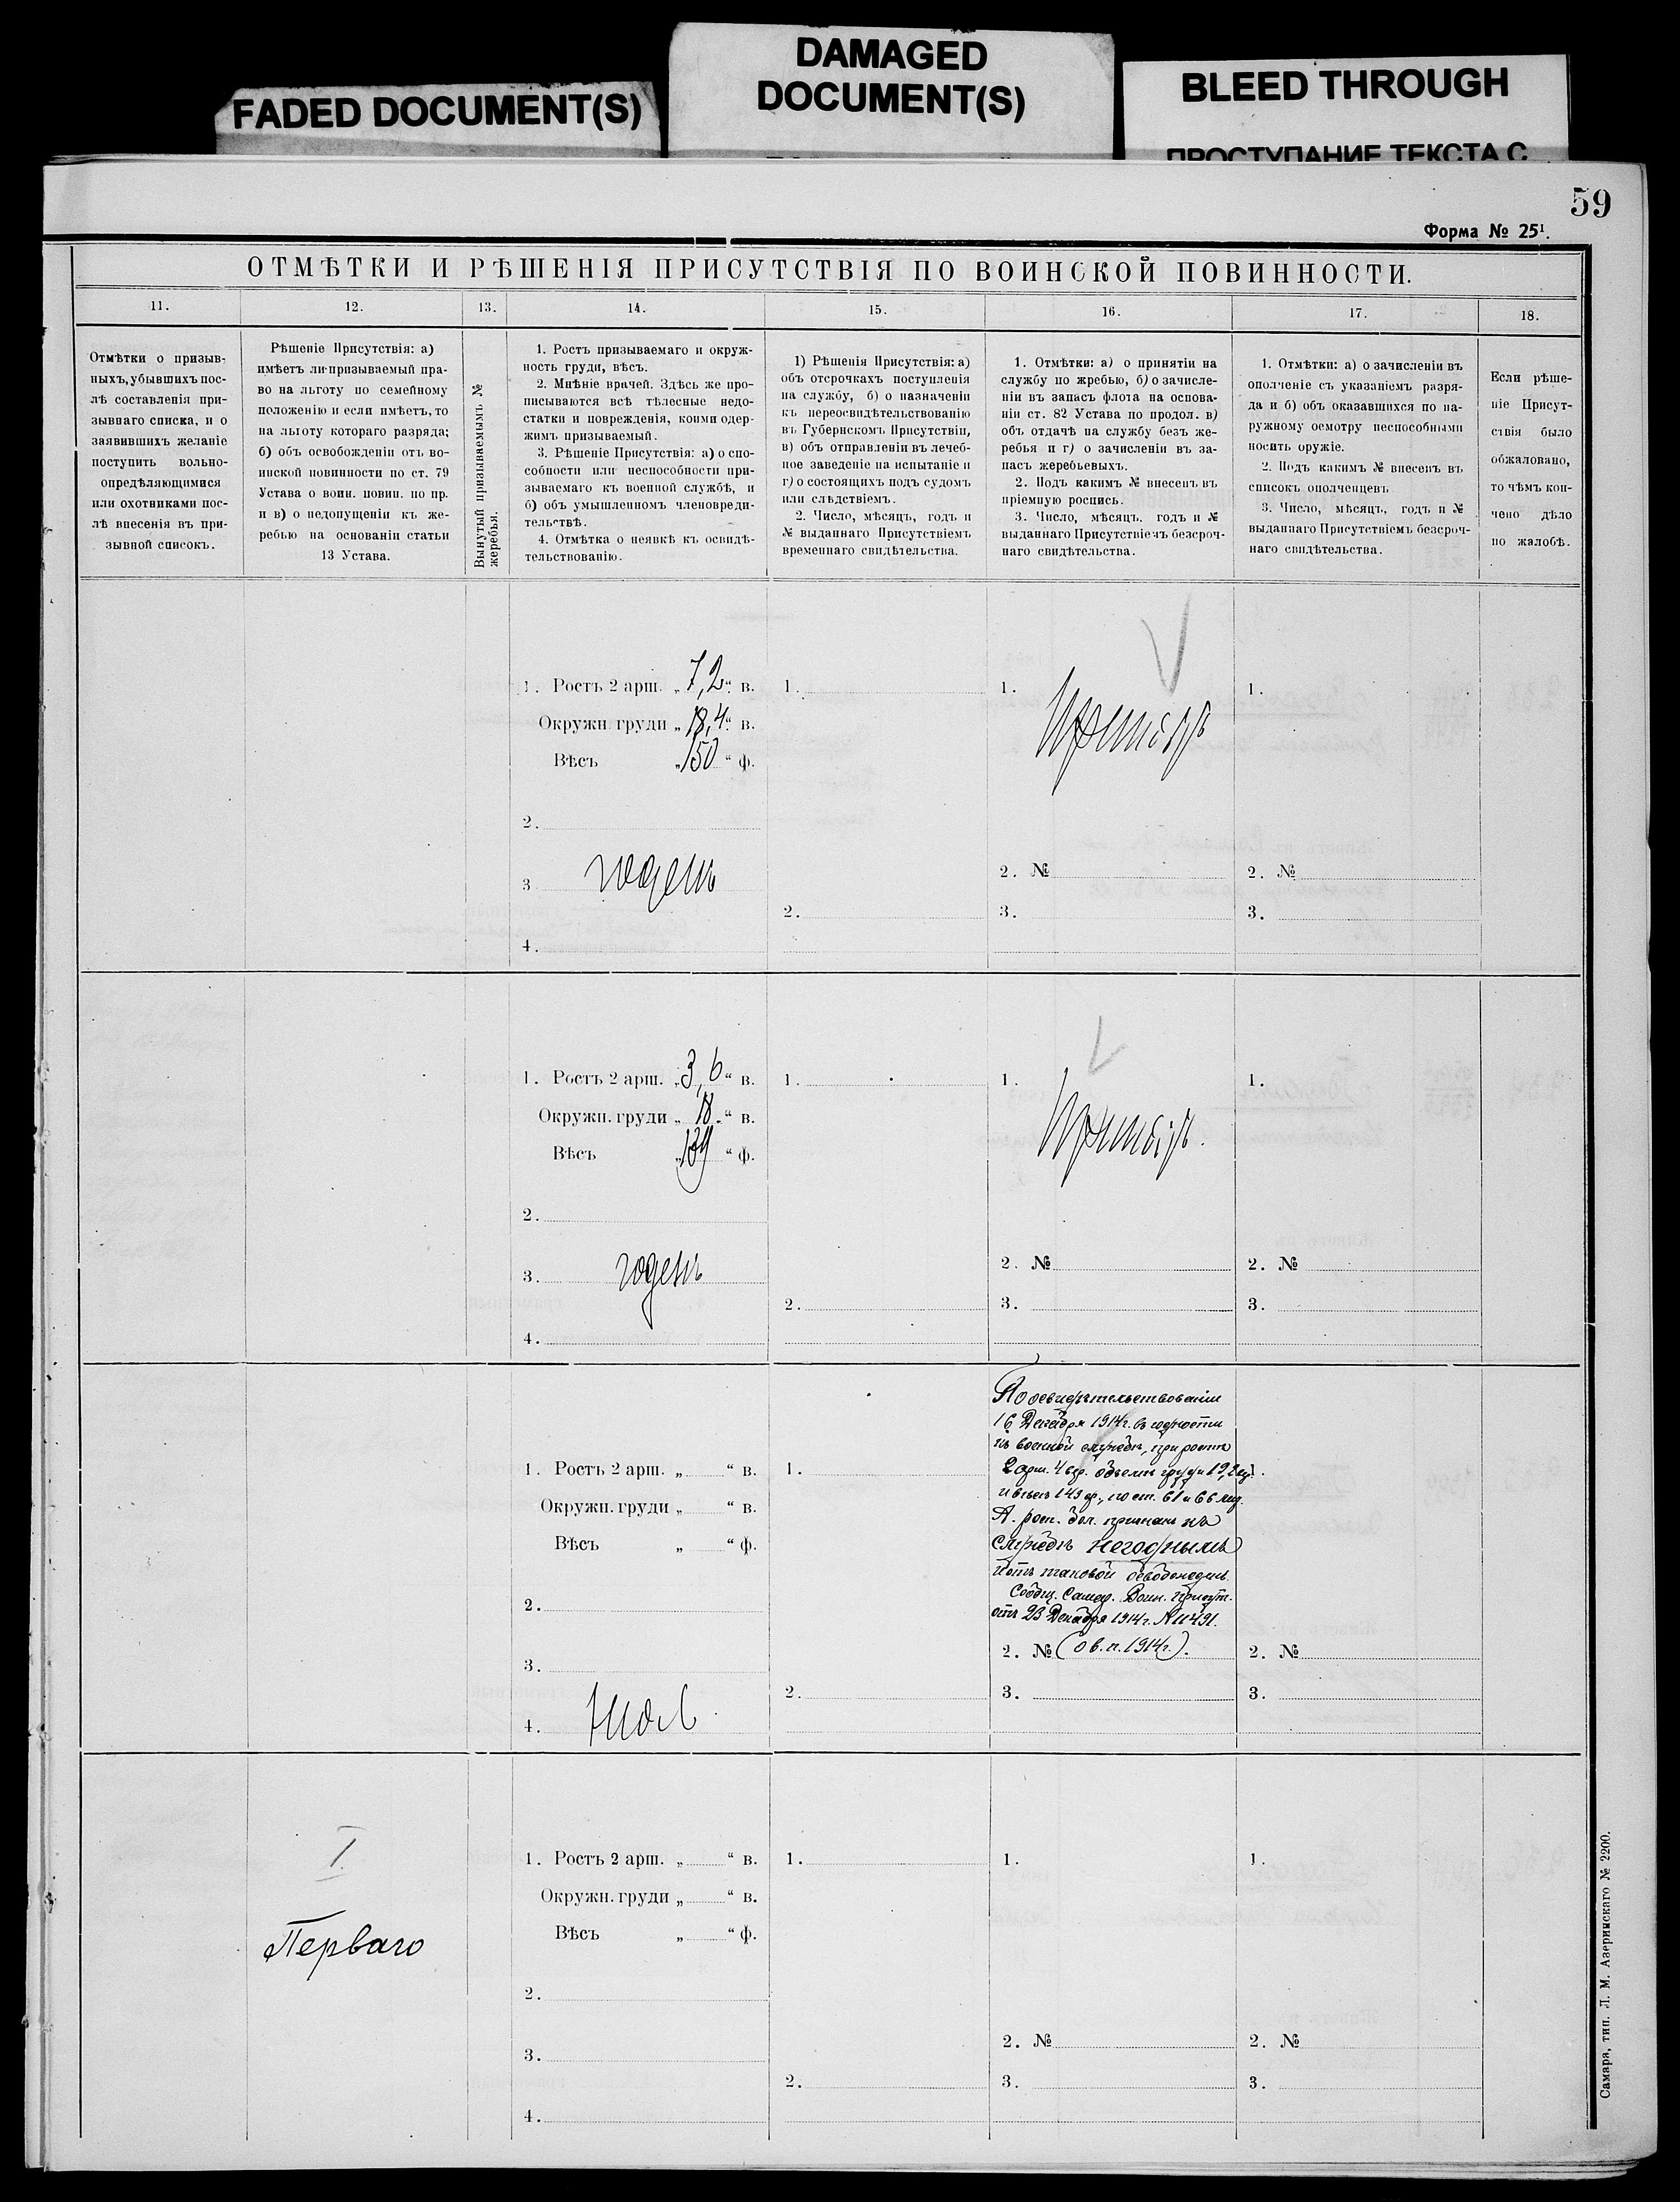 FADED DOCUMENT(S)
DAMAGED
DOCUMENT(S)
BLEED THROUGH
ПРОСТУПАНИЕ ТЕКСТА С
59
Форма № 25¹.
ОТМѢТКИ И РѢШЕНІЯ ПРИСУТСТВІЯ ПО ВОИНСКОЙ ПОВИННОСТИ.
11.
12.
13.
14.
15.
16.
17.
18.
Отмѣтки о призыв-
ныхъ, убывшихъ пос-
лѣ составленія при-
зывнаго списка, и о
заявившихъ желаніе
поступить вольно-
опредѣляющимися
или охотниками пос-
лѣ внесенія въ при-
зывной списокъ.
Рѣшеніе Присутствія: а)
имѣетъ ли призываемый пра-
во на льготу по семейному
положенію и если имѣетъ, то
на льготу котораго разряда;
б) объ освобожденіи отъ во-
инской повинности по ст. 79
Устава о воин. повин. по пр.
и в) о недопущеніи къ же-
ребью на основаніи статьи
13 Устава.
Вынутый призываемымъ №
жеребья.
1. Ростъ призываемаго и окруж-
ность груди, вѣсъ.
2. Мнѣніе врачей. Здѣсь же про-
писываются всѣ тѣлесные недо-
статки и поврежденія, коими одер-
жимъ призываемый.
3. Рѣшеніе Присутствія: а) о спо-
собности или неспособности при-
зываемаго къ военной службѣ, и
б) объ умышленномъ членовреди-
тельствѣ.
4. Отмѣтка о неявкѣ къ освидѣ-
тельствованію.
1) Рѣшенія Присутствія: а)
объ отсрочкахъ поступленія
на службу, б) о назначеніи
къ переосвидѣтельствованію
въ Губернскомъ Присутствіи,
в) объ отправленіи въ лечеб-
ное заведеніе на испытаніе и
г) о состоящихъ подъ судомъ
или слѣдствіемъ.
2. Число, мѣсяцъ, годъ и
№ выданнаго Присутствіемъ
временнаго свидѣтельства.
1. Отмѣтки: а) о принятіи на
службу по жребью, б) о зачисле-
ніи въ запасъ флота на основа-
ніи ст. 82 Устава по продол. в)
объ отдачѣ на службу безъ же-
ребья и г) о зачисленіи въ за-
пасъ жеребьевыхъ.
2. Подъ какимъ № внесенъ въ
пріемную роспись.
3. Число, мѣсяцъ, годъ и №
выданнаго Присутствіемъ безсроч-
наго свидѣтельства.
1. Отмѣтки: а) о зачисленіи въ
ополченіе съ указаніемъ разря-
да и б) объ оказавшихся по на-
ружному осмотру неспособными
носить оружіе.
2. Подъ какимъ № внесенъ въ
списокъ ополченцевъ
3. Число, мѣсяцъ, годъ и №
выданнаго Присутствіемъ безсроч-
наго свидѣтельства.
Если рѣше-
ніе Присут-
ствія было
обжаловано,
то чѣмъ кон-
чено дѣло
по жалобѣ.
1. Ростъ 2 арш. „ 7,2 “ в.
Окружн. груди „ 18,4 “ в.
Вѣсъ „ 150 “ ф.
2.
3 годенъ
4.
1.
2.
1.
Принятъ
2. №
3.
1.
2. №
3.
1. Ростъ 2 арш. „ 3,6 “ в.
Окружн. груди „ 18 “ в.
Вѣсъ „ 139 “ ф.
2.
3. годенъ
4.
1.
2.
1.
Принятъ.
2. №
3.
1.
2. №
3.
1. Ростъ 2 арш. „ “ в.
Окружн. груди „ “ в.
Вѣсъ „ “ ф.
2.
3.
4.
1.
2.
По освидѣтельствованіи
16 Декабря 1914 г. въ годности
къ военной службѣ, при ростѣ
2 арш. 4 вер. объемѣ груди 19,2 вер.
и вѣсѣ 149 ф., по ст. 61 и 66 лит.
А. росп. бол. признанъ къ
службѣ негоднымъ
и отъ таковой освобожденъ.
Сообщ. Самар. Воин. Присут.
отъ 23 Декабря 1914 г. № 11491.
2. № (о в. п. 1914 г.).
3.
2. №
3.
I.
Перваго
1. Ростъ 2 арш. „ “ в.
Окружн. груди „ “ в.
Вѣсъ „ “ ф.
2.
3.
4.
1.
2.
1.
2. №
3.
1.
2. №
3.
Самара, тип. Л. М. Азеринскаго № 2200.